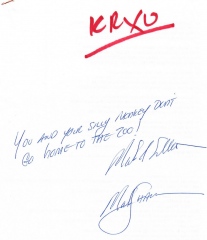 KRXO
YOU AND YOUR SILLY MONKEY DON'T
GO HOME TO THE ZOO!